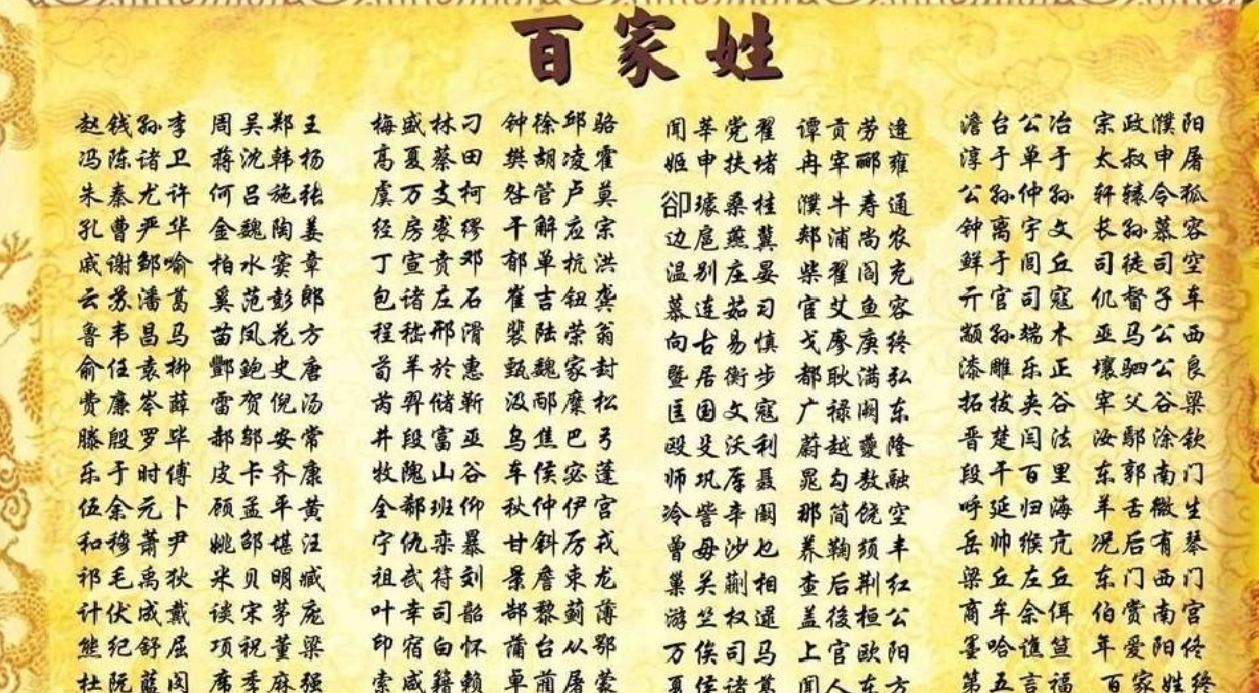 百家姓
赵钱孙李 周吴郑王
冯陈诸卫 蒋沈韩杨
朱秦尤许 何吕施张
孔曹严华 金魏陶姜
戚谢邹喻 柏水窦章
云苏潘葛 奚范彭郎
鲁韦昌马 苗凤花方
俞任袁柳 酆鲍史唐
费廉岑薛 雷贺倪汤
滕殷罗毕 郝邬安常
乐于时傅 皮卡齐康
伍余元卜 顾孟平黄
和穆萧尹 姚邵堪汪
祁毛禹狄 米贝明臧
计伏成戴 谈宋茅庞
熊纪舒屈 项祝董梁
杜阮蓝闵 席季麻强
梅盛林刁 钟徐邱骆
高夏蔡田 樊胡凌霍
虞万支柯 昝管卢莫
经房裘缪 干解应宗
丁宣贲邓 郁单杭洪
包诸庄石 崔吉钮龚
程嵇邢滑 裴陆荣翁
荀羊於惠 甄魏家封
芮羿储靳 汲邴糜松
井段富巫 乌焦巴弓
牧隗山谷 车侯宓蓬
全郗班仰 秋仲伊宫
宁仇栾暴 甘斜厉戎
祖武符刘 景詹束龙
叶幸司韶 郜黎蓟薄
印宿白怀 蒲台从鄂
索咸籍赖 卓蔺屠蒙
闻莘党翟 谭贡劳逄
姬申扶堵 冉宰郦雍
卻璩桑桂 濮牛寿通
边扈燕冀 郏浦尚农
温别庄晏 柴瞿阎充
慕连茹习 宦艾鱼容
向古易慎 戈廖庚终
暨居衡步 都耿满弘
匡国文寇 广禄阙东
殴殳沃利 蔚越夔隆
师巩厍聂 晁勾敖融
冷訾辛阚 那简饶空
曾毋沙乜 养鞠须丰
巢关蒯相 查后荆红
游竺权逯 盖後桓公
万俟司马 上官欧阳
夏侯诸葛 闻人东方
澹台公冶 宗政濮阳
淳于单于 太叔申屠
公孙仲孙 轩辕令狐
钟离宇文 长孙慕容
鲜于闾丘 司徒司空
亓官司寇 仉督子车
颛孙端木 巫马公西
漆雕乐正 壤驷公良
拓拔夹谷 宰父谷梁
晋楚闫法 汝鄢涂钦
段干百里 东郭南门
呼延归海 羊舌微生
岳帅缑亢 况后有琴
梁丘左丘 东门西门
商牟佘佴 伯赏南宫
墨哈谯笪 年爱阳佟
第五言福 百家姓终